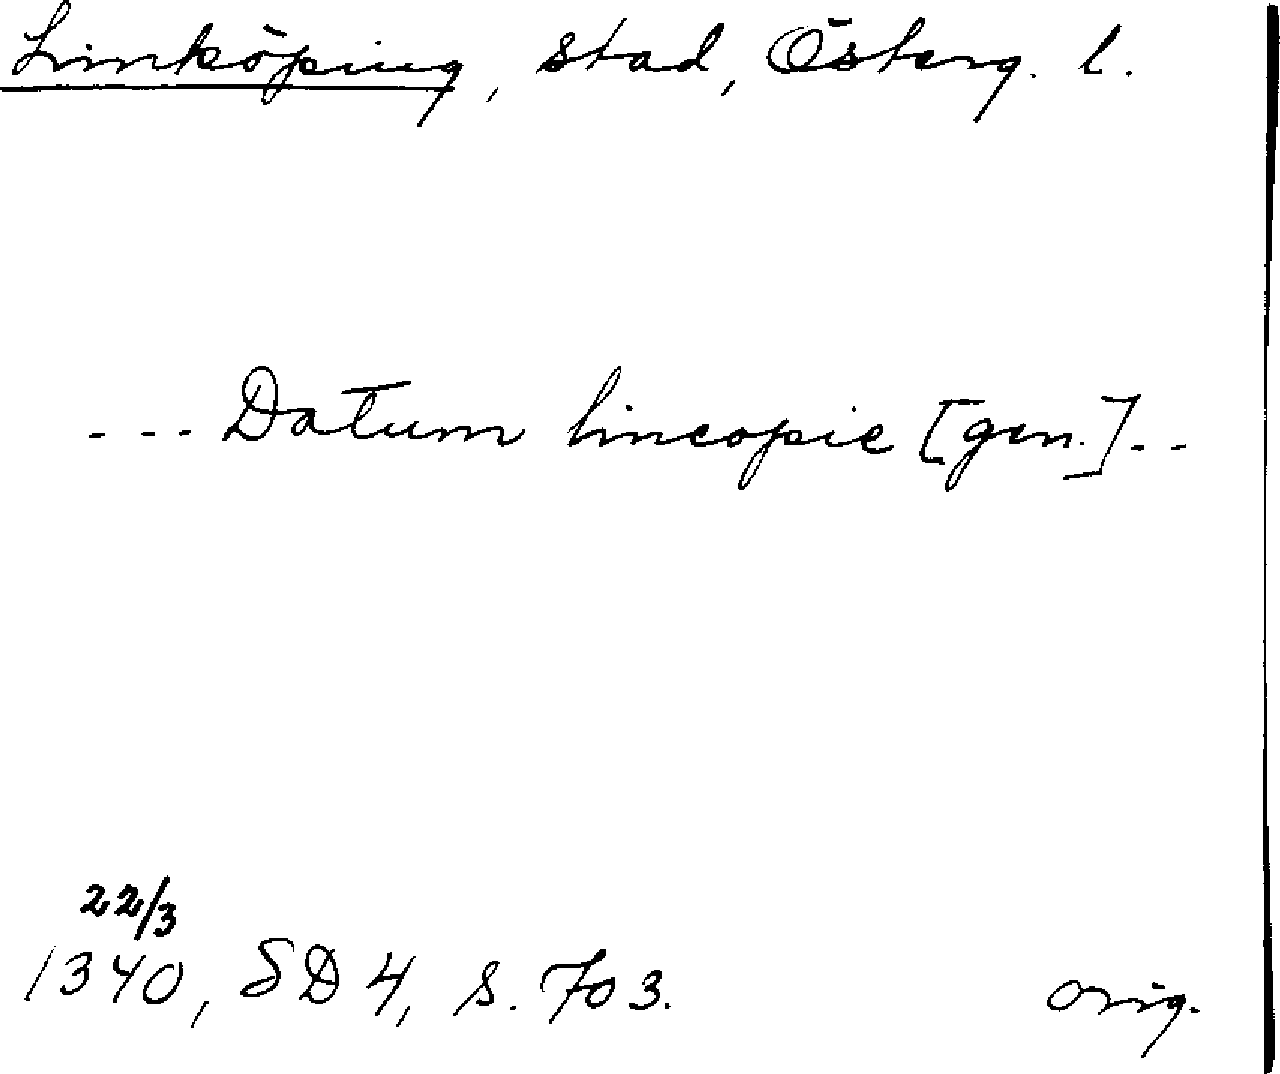 Linköping, stad, Österg. l.
- - - Datum lincopie [gen.] - -
22/3
1340, SD 4, s. 703.
orig.